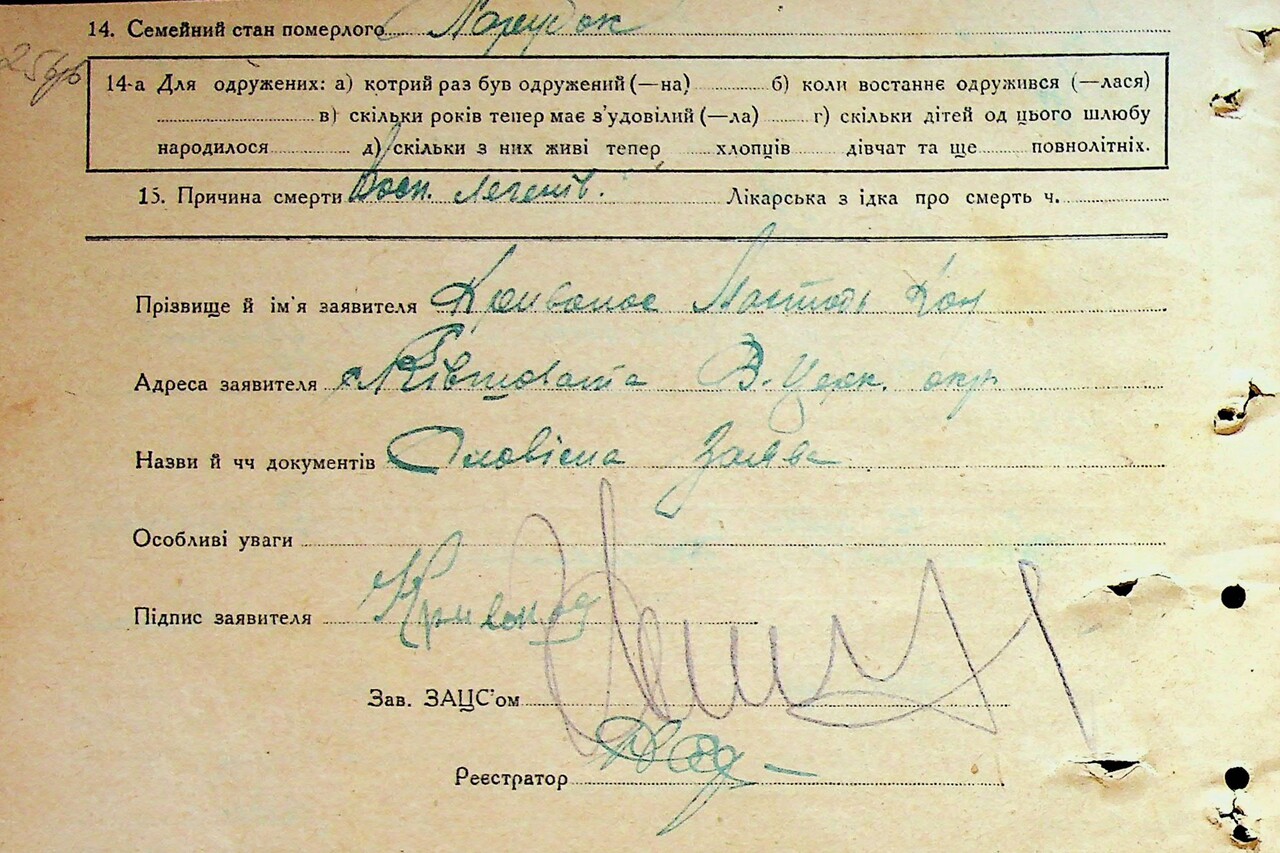 14. Семейний стан померлого Парубок
14-а Для одружених: а) котрий раз був одружений (—на) б) коли востаннє одружився (—лася)
в) скільки років тепер має з'удовілий (—ла) г) скільки дітей од цього шлюбу
народилося д) скільки з них живі тепер хлопців дівчат та ще повнолітніх.
15. Причина смерти Восп. легенів. Лікарська з ідка про смерть ч.
Прізвище й ім'я заявителя Кривонос
Адреса заявителя Ківшовата Б-Церк. окр
Назви й чч документів Словісна Заява
Особливі уваги
Підпис заявителя Кривонос
Зав. ЗАЦС'ом
Реєстратор